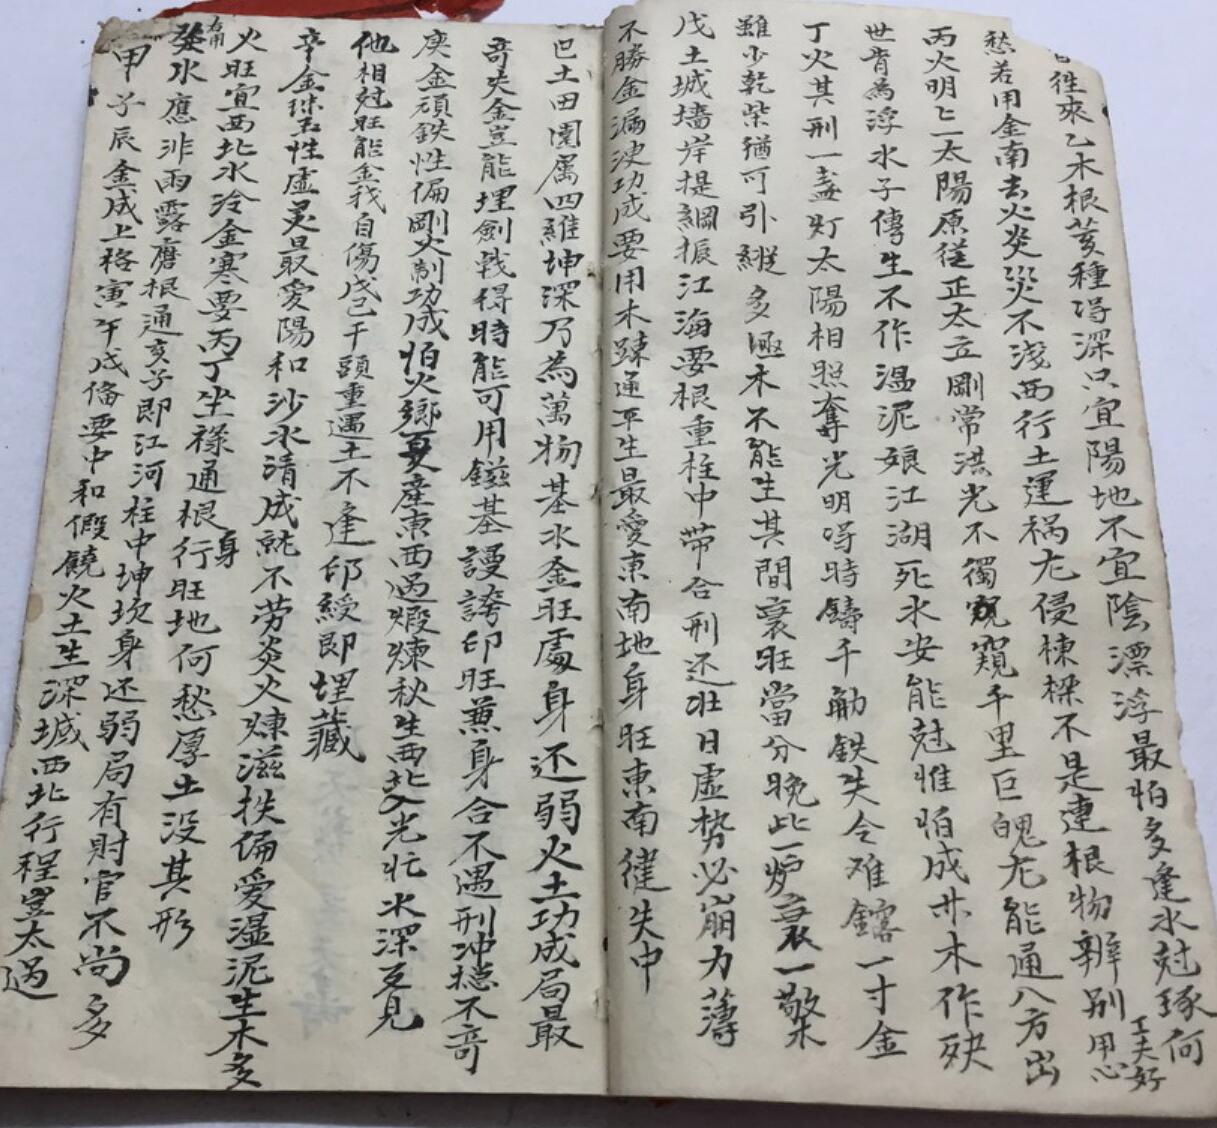 徃來乙木根荄種淂深只宜陽地不宜陰漂浮最怕多逢水尅琢何
愁若用金南去火炎災不浅西行土運祸尤侵棟樑不是連根物辨别用心工夫好
丙火明明一太陽原従正太立剛常洪光不獨窺千里巨魄尤能通八方出
世肯為浮水子傳生不作温泥娘江湖死水安能尅惟怕成林木作殃
丁火其刑一盞灯太陽相照奪光明淂時鑄千觔鉄失令难鎔一寸金
雖少乾柴猶可引縱多濕木不能生其間衰旺當分晚此一炉衰一擎木
戊土城墻岸提綱振江海要根重柱中带合刑还壮日虚勢必崩力薄
不勝金漏洩功成要用木踈通平生最愛東南地身旺東南健失中
巳土田園属四維坤深乃為萬物基水金旺處身还弱火土功成局最
竒失金豈能埋劍戟得時能可用鎡基謾誇印旺兼身合不遇刑冲揔不竒
庚金頑鉄性偏剛火制功成怕火鄉夏産東西遇煅煉秋生西北入光忙水深互見
他相尅旺能金我自傷戊巳干頭重遇土不逢邙綬即埋藏
辛金珠玉性虛灵最愛陽和沙水清成就不劳炎火煉滋扶偏愛溫泥生木多
火旺宜西北水冷金寒要丙丁坐禄通根身行旺地何愁厚土没其形
癸水應非雨露麿根通亥子即江河柱中坤坎身还弱局有財官不尚多
甲子辰金成上格寅午戍俻要中和假饒火土生深城西北行程豈太过